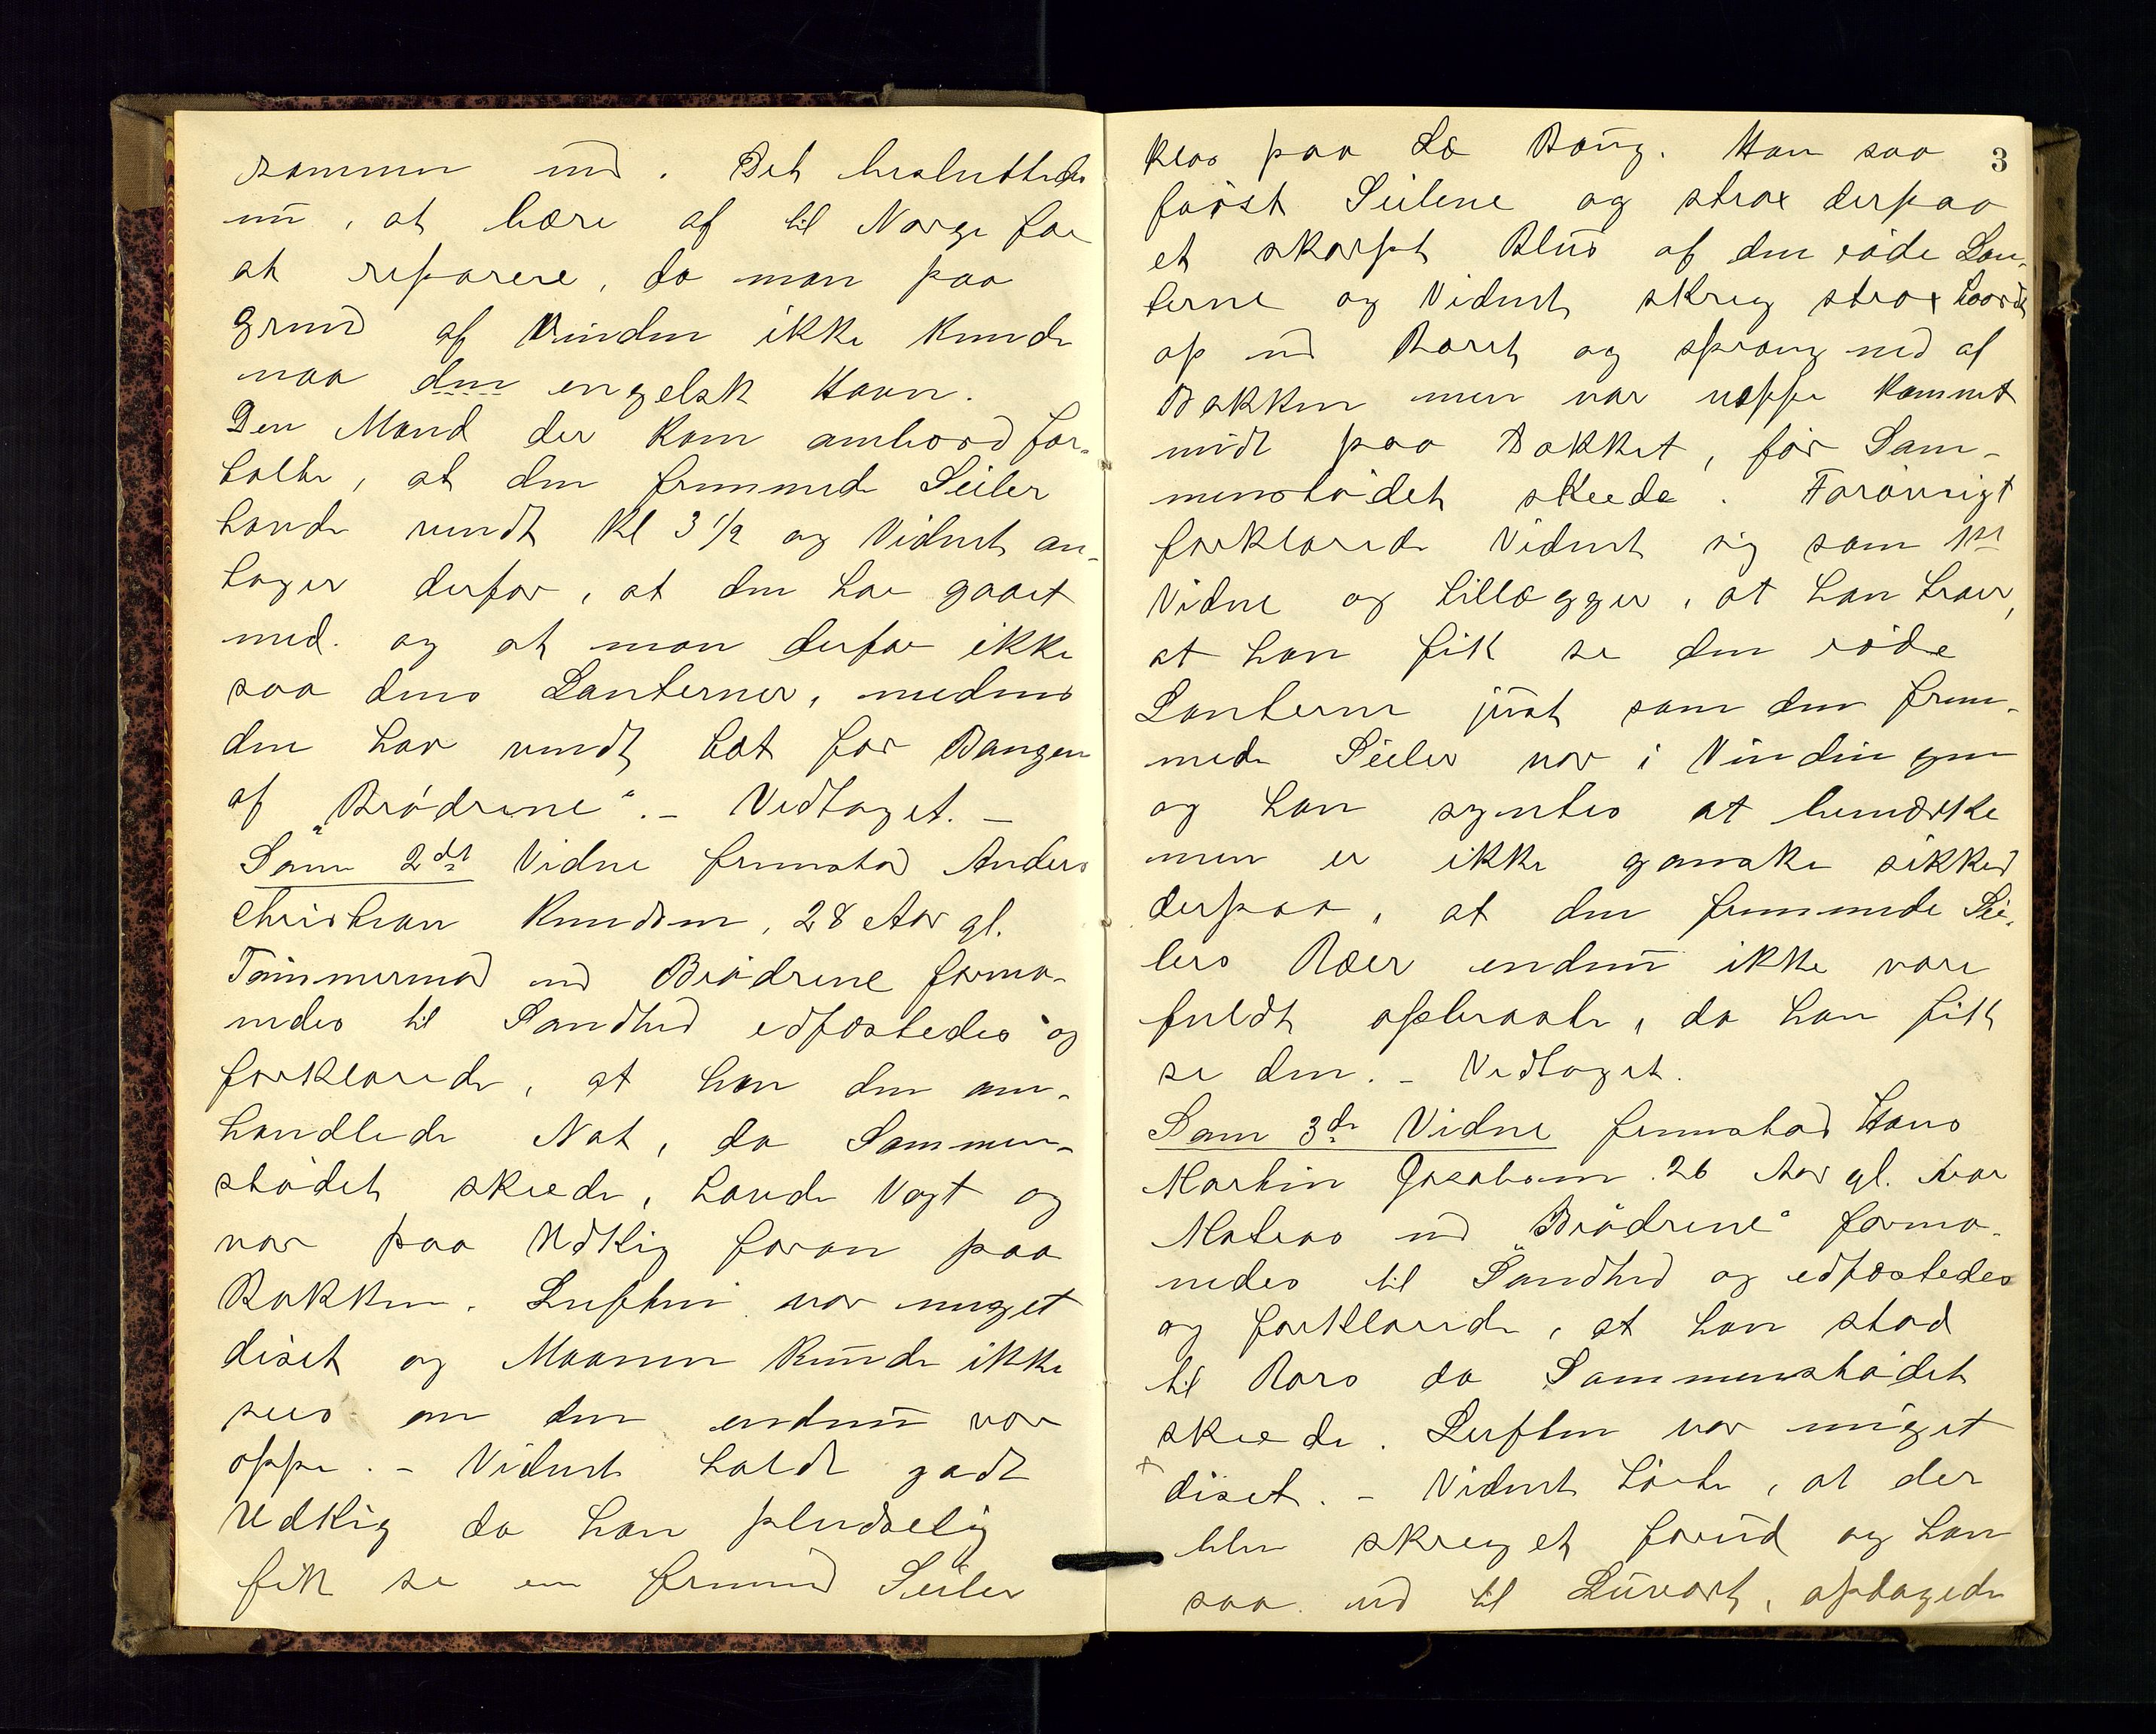 sammen med. Det besluttedes
nu, at bære af til Norge for
at reparere, da man paa
Grund af Vinden ikke kunde
naa den engelsk Havn.
Den Mand der kom ombord for-
talte, at den fremmede Seiler
havde vendt Kl 3 1/2 og Vidnet an-
tager derfor, at den har gaaet
med og at man derfor ikke
saa dens Lanterner, medens
den har vendt tæt for Bougen
af „Brødrene“. – Vedtaget. –
Som 2det Vidne fremstod Anders
Christian Knudsen, 28 Aar gl.
Tømmermand med Brødrene forma-
nedes til Sandhed edfæstedes og
forklarede, at han den om-
handlede Nat, da Sammen-
stødet skeede, havde Vagt og
var paa Udkig foran paa
Bakken. Luften var meget
diset og Maanen kunde ikke
sees om den endnu var
oppe. – Vidnet holdt godt
Udkig da han pludselig
fik se en fremmed Seiler
3
klos paa Læ Boug. Han saa
først Seilene og strax derpaa
et skarpt Blus af den røde Lan-
terne og Vidnet skreg strax haardt
op med Roret og sprang ned af
Bakken men var neppe kommet
midt paa Dækket, før Sam-
menstødet skeede. Forøvrigt
forklarede Vidnet sig som 1ste
Vidne og tillægger, at han troer,
at han fik se den røde
Lanterne just som den frem-
mede Seiler var i Vindøien
og han syntes at bemærke
men er ikke ganske sikker
derpaa, at den fremmede Sei-
lers Ræer endnu ikke vare
fuldt opbraste, da han fik
se den. – Vedtaget.
Som 3de Vidne fremstod Hans
Martin Jacobsen 26 Aar gl. var
Matros med „Brødrene“ forma-
nedes til Sandhed og edfæstedes
og forklarede, at han stod
til Rors da Sammenstødet
skeede. Luften var meget
diset. – Vidnet hørte, at der
blev skreget forud og han
saa ud til Luvart, opdagede